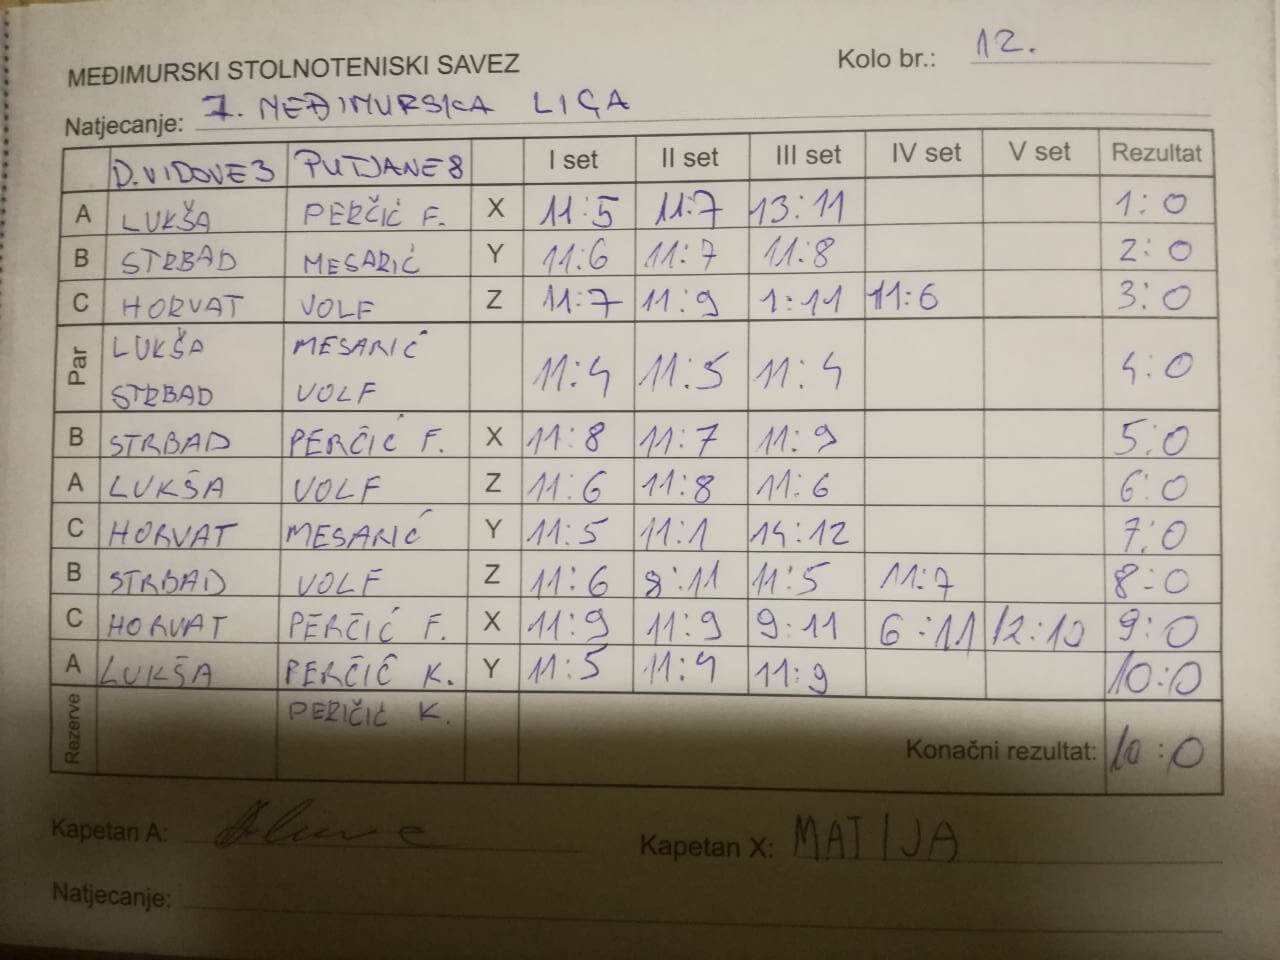 MEĐIMURSKI STOLNOTENISKI SAVEZ
Kolo br.: 12.
Natjecanje: 1. MEĐIMURSKA LIGA
D.VIDOVE3 PUTJANE8 I set II set III set IV set V set Rezultat
A LUKŠA PERČIĆ F. X 11:5 11:7 13:11 1:0
B STRBAD MESARIĆ Y 11:6 11:7 11:8 2:0
C HORVAT VOLF Z 11:7 11:9 1:11 11:6 3:0
Par LUKŠA MESARIĆ 11:4 11:5 11:4 4:0
STRBAD VOLF
B STRBAD PERČIĆ F. X 11:8 11:7 11:9 5:0
A LUKŠA VOLF Z 11:6 11:8 11:6 6:0
C HORVAT MESARIĆ Y 11:5 11:1 14:12 7:0
B STRBAD VOLF Z 11:6 9:11 11:5 11:7 8:0
C HORVAT PERČIĆ F. X 11:9 11:9 9:11 6:11 12:10 9:0
A LUKŠA PERČIĆ K. Y 11:5 11:4 11:9 10:0
Rezerve PERIČIĆ K.
Konačni rezultat: 10:0
Kapetan A:
Kapetan X: MATIJA
Natjecanje: